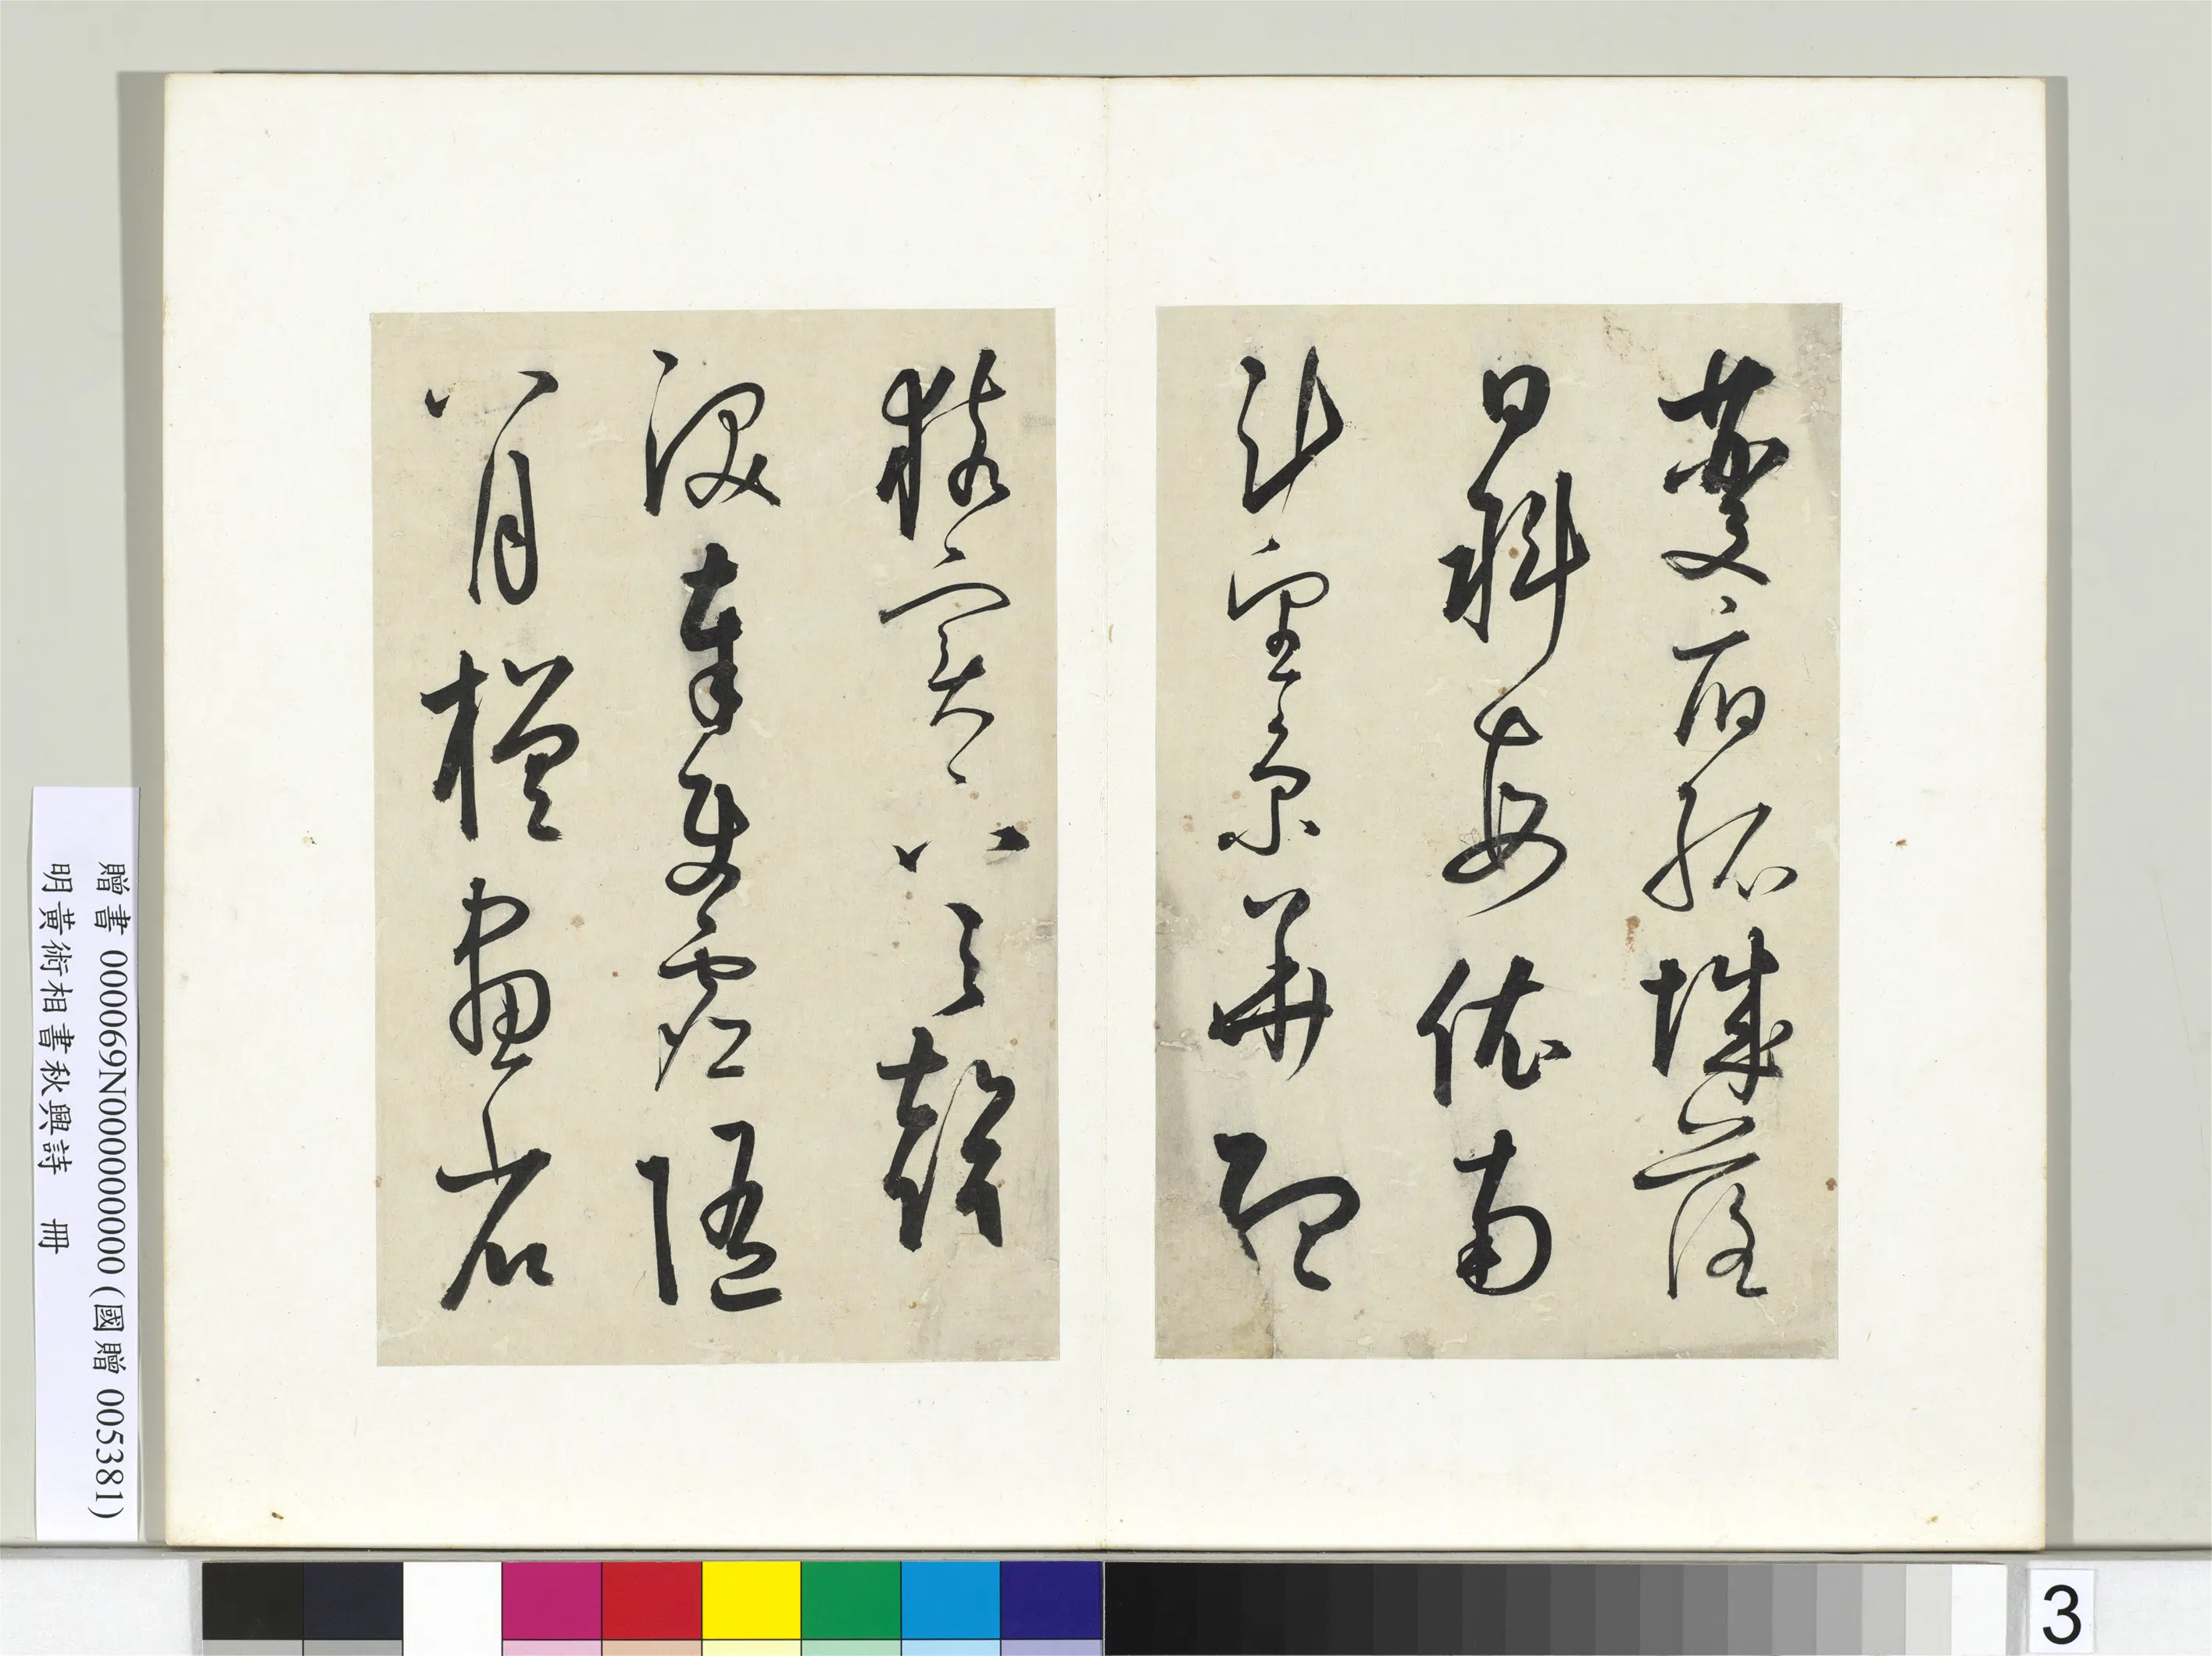 夔府孤城落
日斜每依南
斗望京華聽
猿實下三聲
淚奉使虛隨
八月槎畫省
贈書 000069N000000000 (國贈 005381)
明黃術相書秋興詩 冊
3